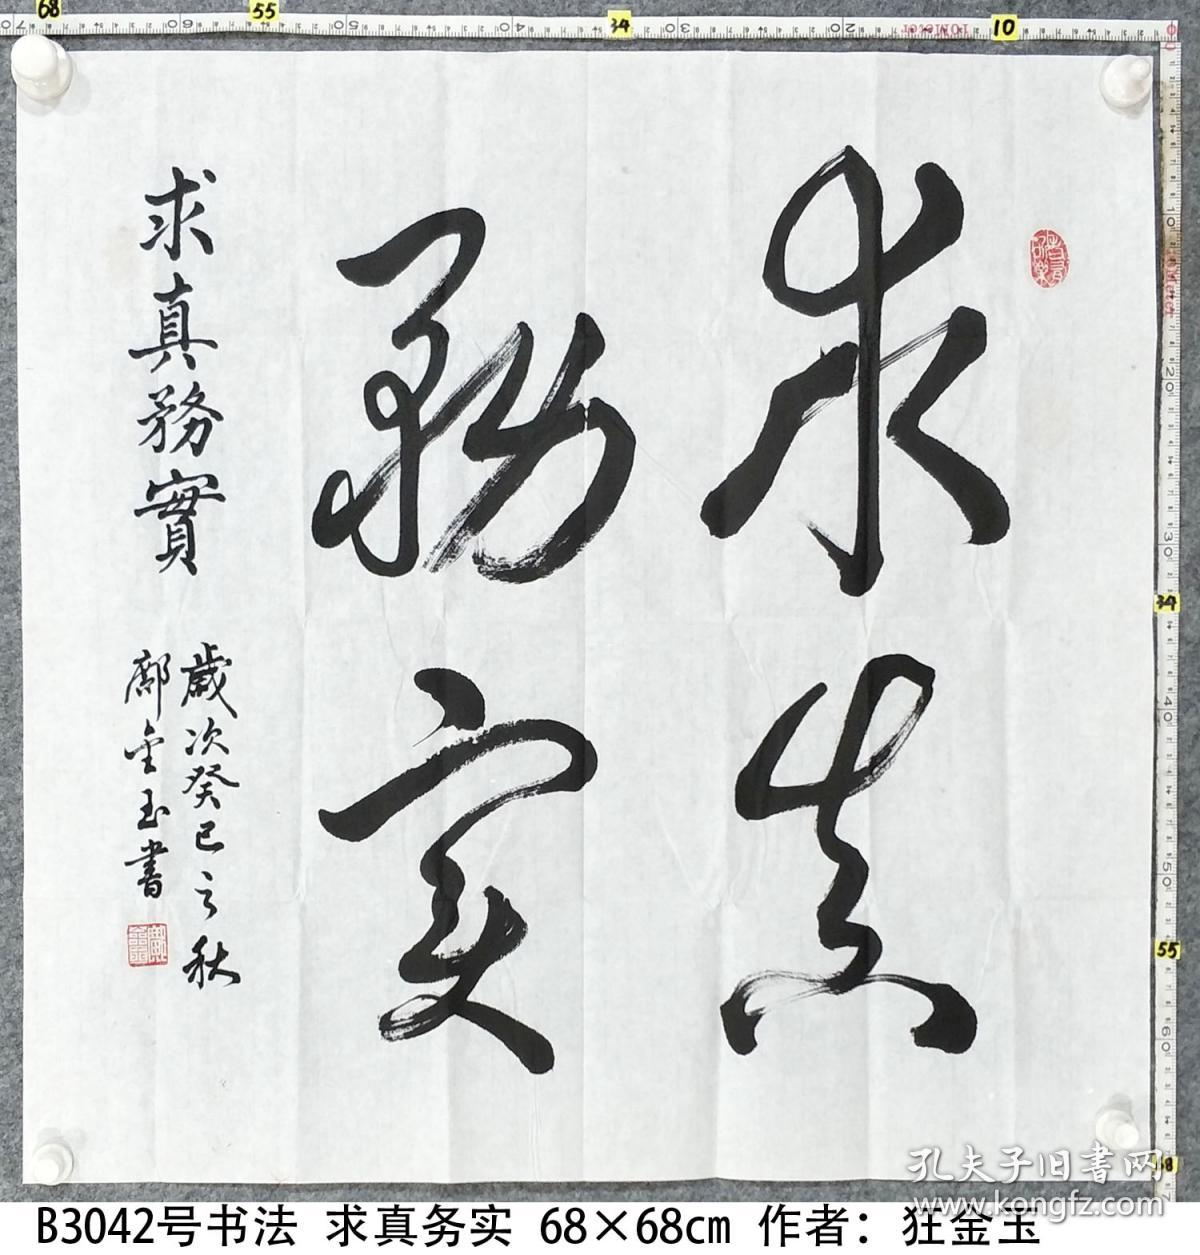 求真
務实
求真務實
歲次癸巳之秋
鄺金玉書
孔夫子旧书网
www.kongfz.com
B3042号书法 求真务实 68×68cm 作者：狂金玉